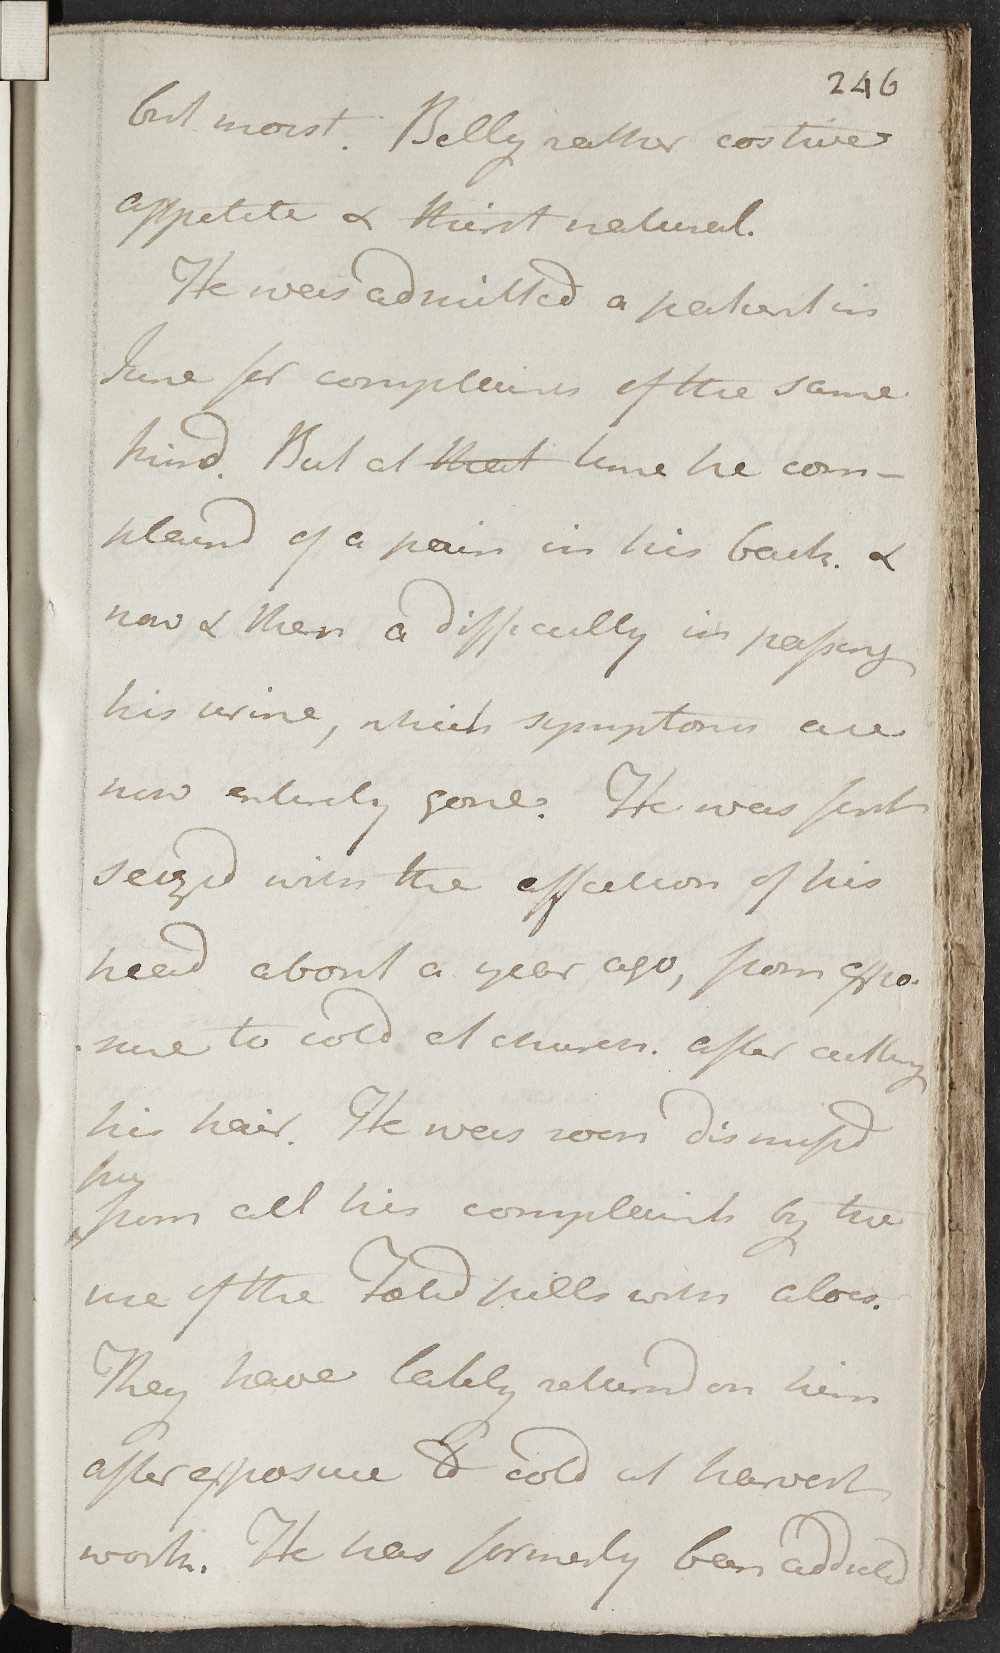 246
but moist. Belly rather costive
appetite & thirst natural.
He was admitted a patient in
June for complaints of the same
kind. But at that time he com-
plaind of a pain in his back. &
now & then a difficulty in passing
his urine, which symptoms are
now entirely gone. He was first
seizd with the affection of his
head about a year ago, from expo-
sure to cold at church. after cutting
his hair. He was soon dismissd
from all his complaints by the
use of the Fœtid pills with aloes.
They have lately returnd on him
after exposure to cold at harvest
work. He has formerly been addicted